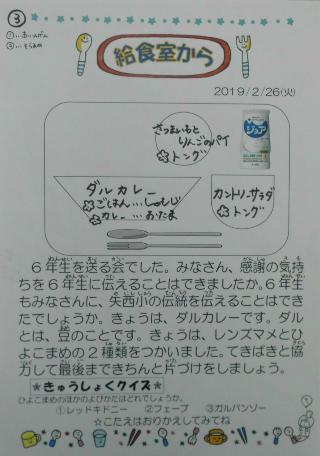 ③
①…あいんげん
②…そらまめ
給食室から
2019/2/26(火)
さつまいもと
りんごのパイ
☆トング
ジョア
ダルカレー
☆ごはん…しゃもじ
☆カレー…おたま
カントリーサラダ
☆トング
6年生を送る会でした。みなさん、感謝の気持
ちを6年生に伝えることはできましたか。6年生
もみなさんに、矢西小の伝統を伝えることはでき
たでしょうか。きょうは、ダルカレーです。ダル
とは、豆のことです。きょうは、レンズマメとひ
よこまめの2種類をつかいました。てきぱきと協
力して最後まできちんと片づけをしましょう。
★きゅうしょくクイズ★
ひよこまめのほかのよびかたはどれでしょう。
①レッドキドニー ②フェーブ ③ガルバンゾー
☆こたえはおりかえしてみてね